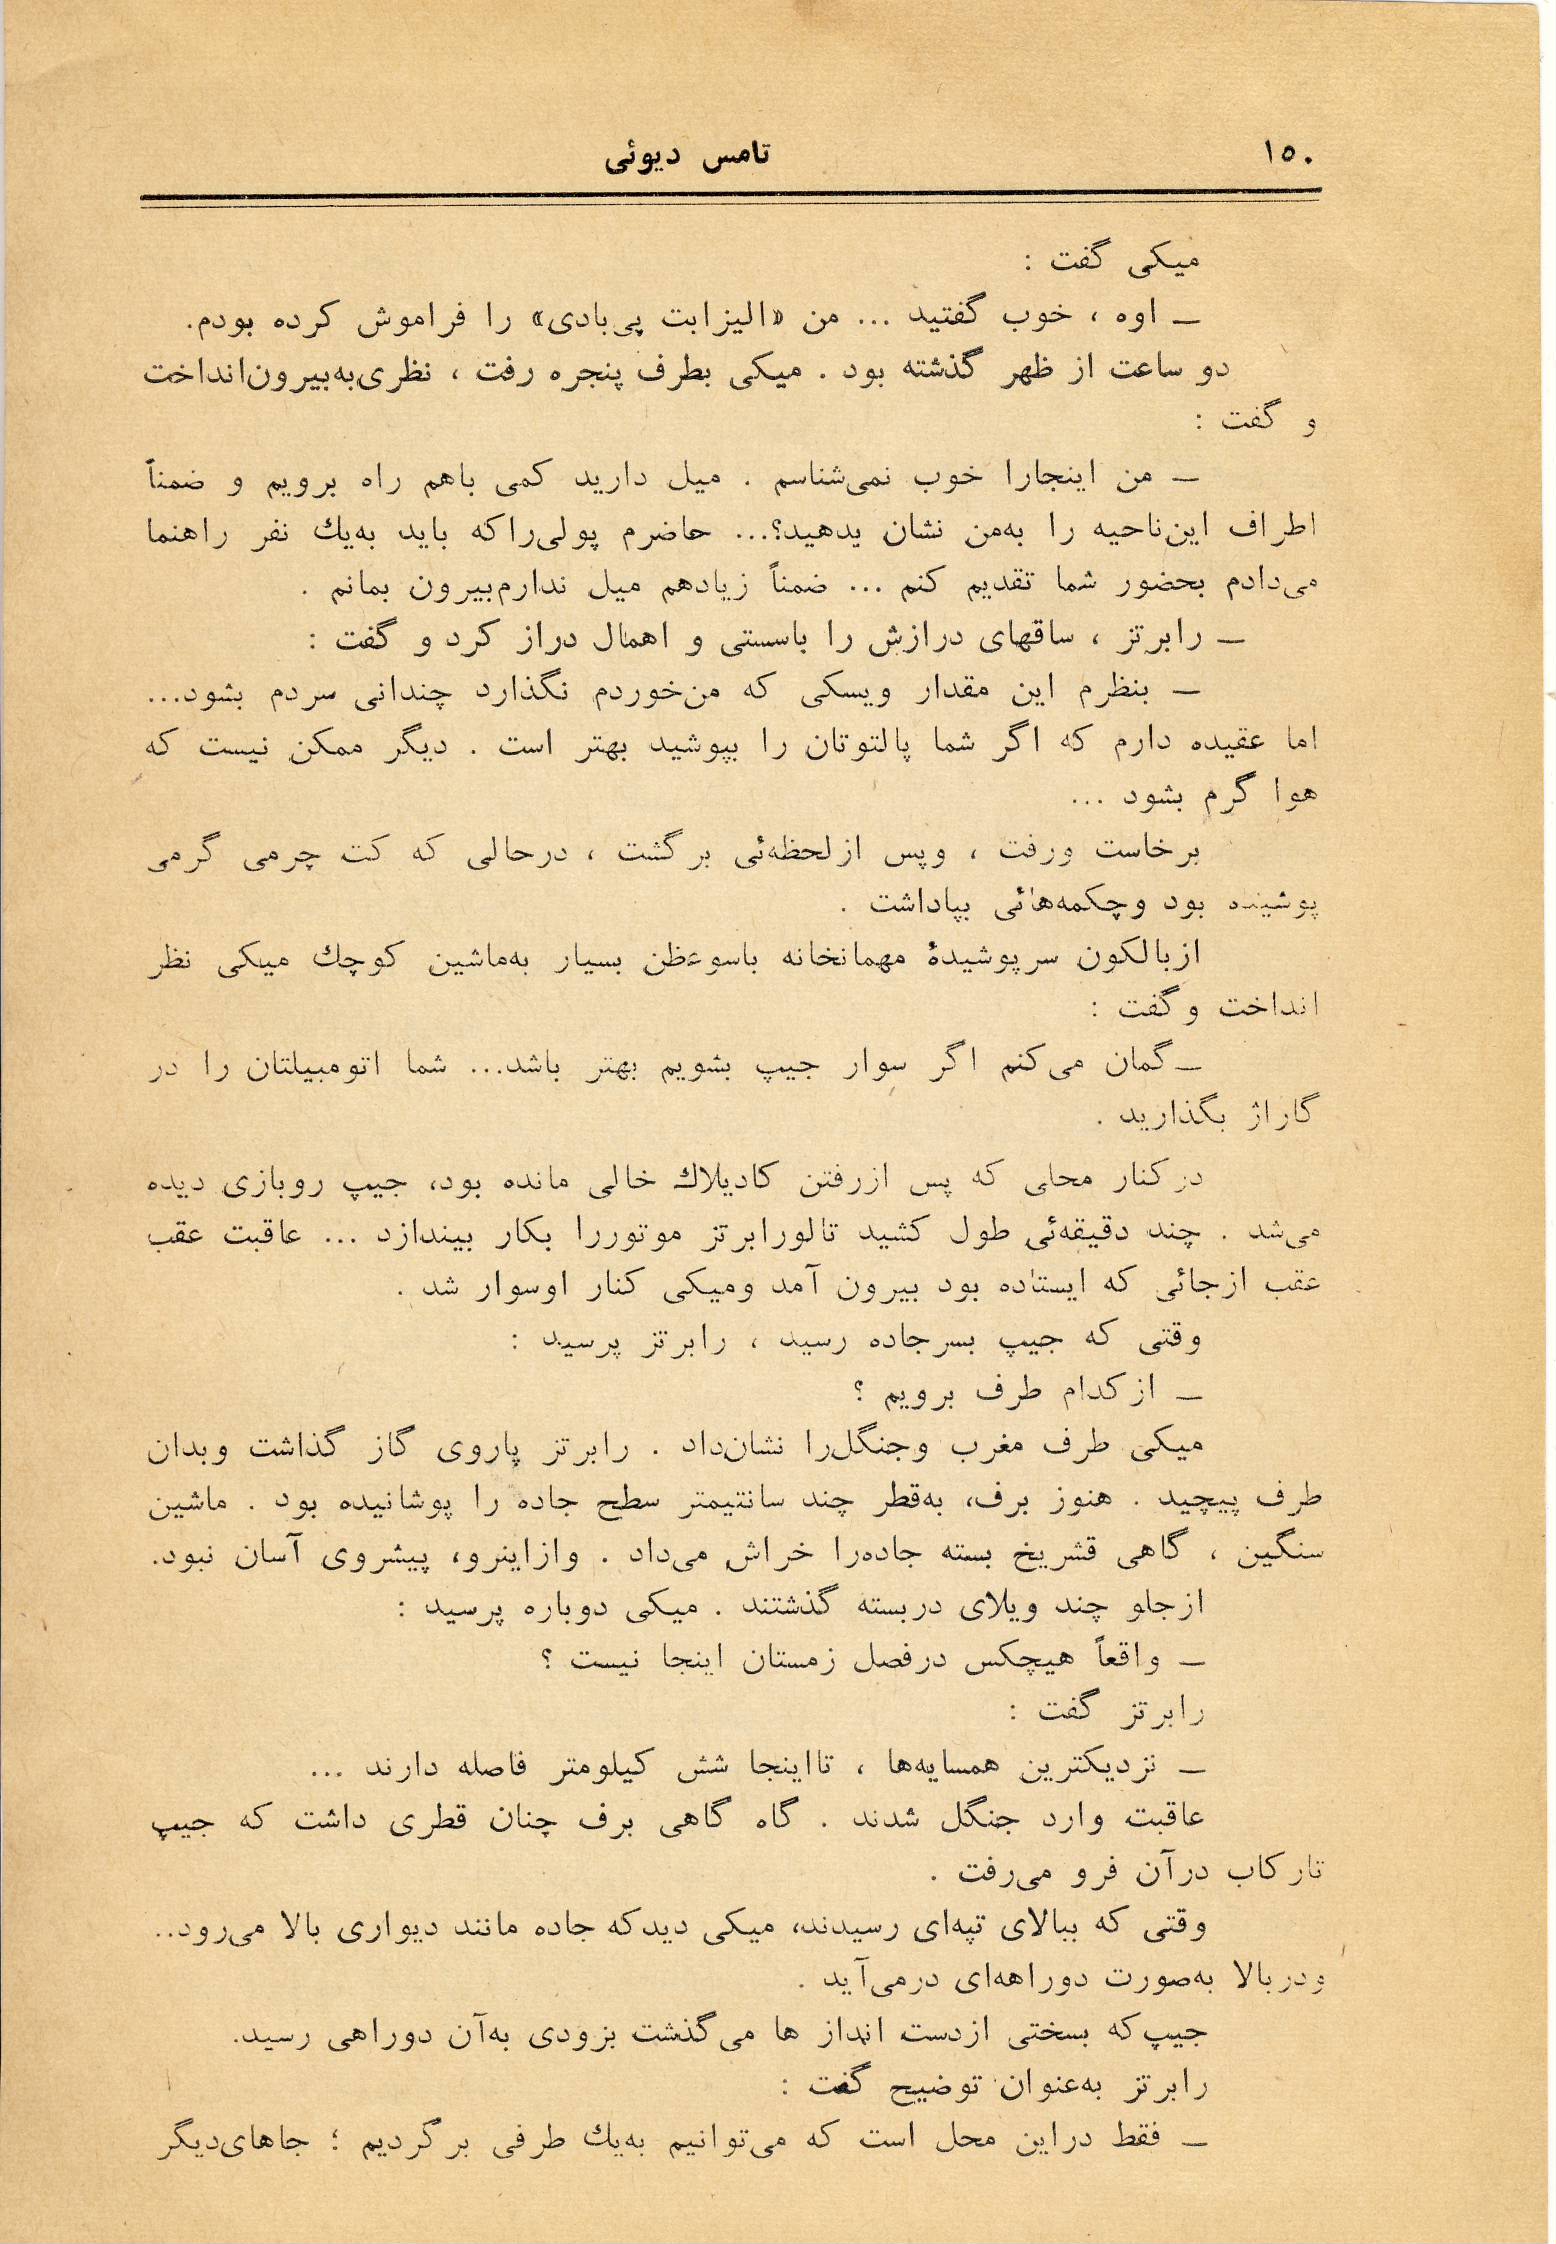 ۱۵۰
تامس دیوئی
میکی گفت :
ـ اوه ، خوب گفتید ... من «الیزابت پی‌بادی» را فراموش کرده بودم.
دو ساعت از ظهر گذشته بود . میکی بطرف پنجره رفت ، نظری‌به‌بیرون‌انداخت
و گفت :
ـ من اینجارا خوب نمی‌شناسم . میل دارید کمی باهم راه برویم و ضمناً
اطراف این‌ناحیه را به‌من نشان یدهید؟... حاضرم پولی‌راکه باید به‌یك نفر راهنما
می‌دادم بحضور شما تقدیم کنم ... ضمناً زیادهم میل ندارم‌بیرون بمانم .
ـ رابرتز ، ساقهای درازش را باسستی و اهمال دراز کرد و گفت :
ـ بنظرم این مقدار ویسکی که من‌خوردم نگذارد چندانی سردم بشود...
اما عقیده دارم که اگر شما پالتوتان را بپوشید بهتر است . دیگر ممکن نیست که
هوا گرم بشود ...
برخاست ورفت ، وپس ازلحظه‌ئی برگشت ، درحالی که کت چرمی گرمی
پوشیده بود وچکمه‌هائی بپاداشت .
ازبالکون سرپوشیدۀ مهمانخانه باسوءظن بسیار به‌ماشین کوچك میکی نظر
انداخت وگفت :
ـ گمان می‌کنم اگر سوار جیپ بشویم بهتر باشد... شما اتومبیلتان را در
گاراژ بگذارید .
درکنار محلی که پس ازرفتن کادیلاك خالی مانده بود، جیپ روبازی دیده
می‌شد . چند دقیقه‌ئی طول کشید تالورابرتز موتوررا بکار بیندازد ... عاقبت عقب
عقب ازجائی که ایستاده بود بیرون آمد ومیکی کنار اوسوار شد .
وقتی که جیپ بسرجاده رسید ، رابرتز پرسید :
ـ ازکدام طرف برویم ؟
میکی طرف مغرب وجنگل‌را نشان‌داد . رابرتز پاروی گاز گذاشت وبدان
طرف پیچید . هنوز برف، به‌قطر چند سانتیمتر سطح جاده را پوشانیده بود . ماشین
سنگین ، گاهی قشریخ بسته جاده‌را خراش می‌داد . وازاینرو، پیشروی آسان نبود.
ازجلو چند ویلای دربسته گذشتند . میکی دوباره پرسید :
ـ واقعاً هیچکس درفصل زمستان اینجا نیست ؟
رابرتز گفت :
ـ نزدیکترین همسایه‌ها ، تااینجا شش کیلومتر فاصله دارند ...
عاقبت وارد جنگل شدند . گاه گاهی برف چنان قطری داشت که جیپ
تارکاب درآن فرو می‌رفت .
وقتی که ببالای تپه‌ای رسیدند، میکی دیدکه جاده مانند دیواری بالا می‌رود..
ودربالا به‌صورت دوراهه‌ای درمی‌آید .
جیپ‌که بسختی ازدست انداز ها می‌گذشت بزودی به‌آن دوراهی رسید.
رابرتز به‌عنوان توضیح گفت :
ـ فقط دراین محل است که می‌توانیم به‌یك طرفی برگردیم ؛ جاهای‌دیگر